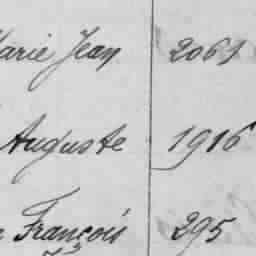 Marie Jean 2061
Auguste 1916
François 295